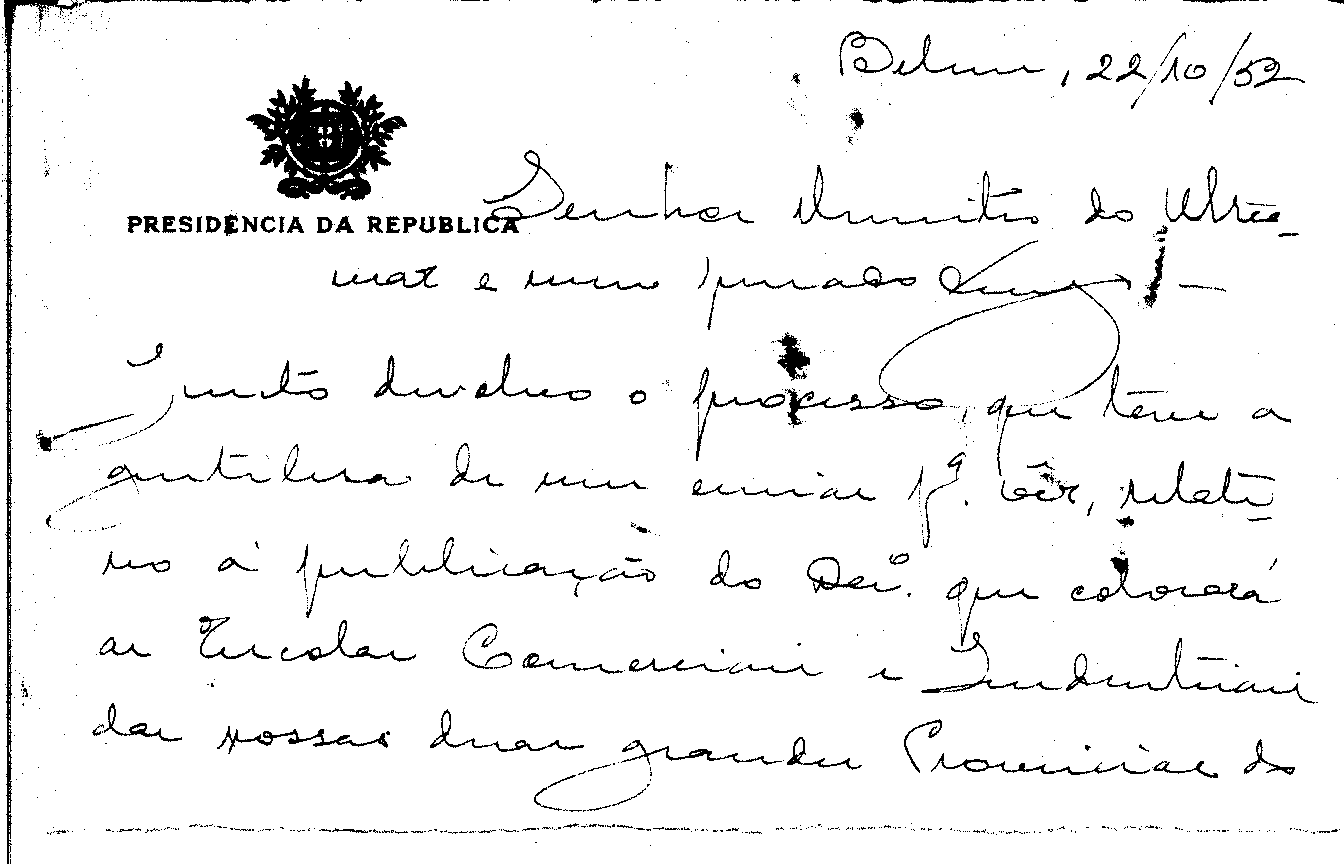 Belem, 22/10/52
PRESIDENCIA DA REPUBLICA
Senhor Ministro do Ultra-
mar e meu prezado Amigo —
Junto devolvo o processo, que teve a
gentileza de me enviar pª. lêr, relati-
vo à publicação do Decº. que colocará
as Escolas Comerciais e Industriais
das nossas duas grandes Provincias do